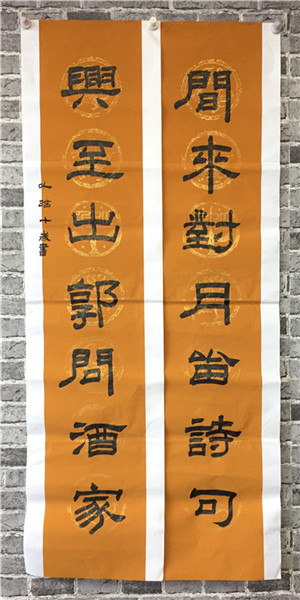 間來對月畄詩可
興至出郭問酒家
十歲書